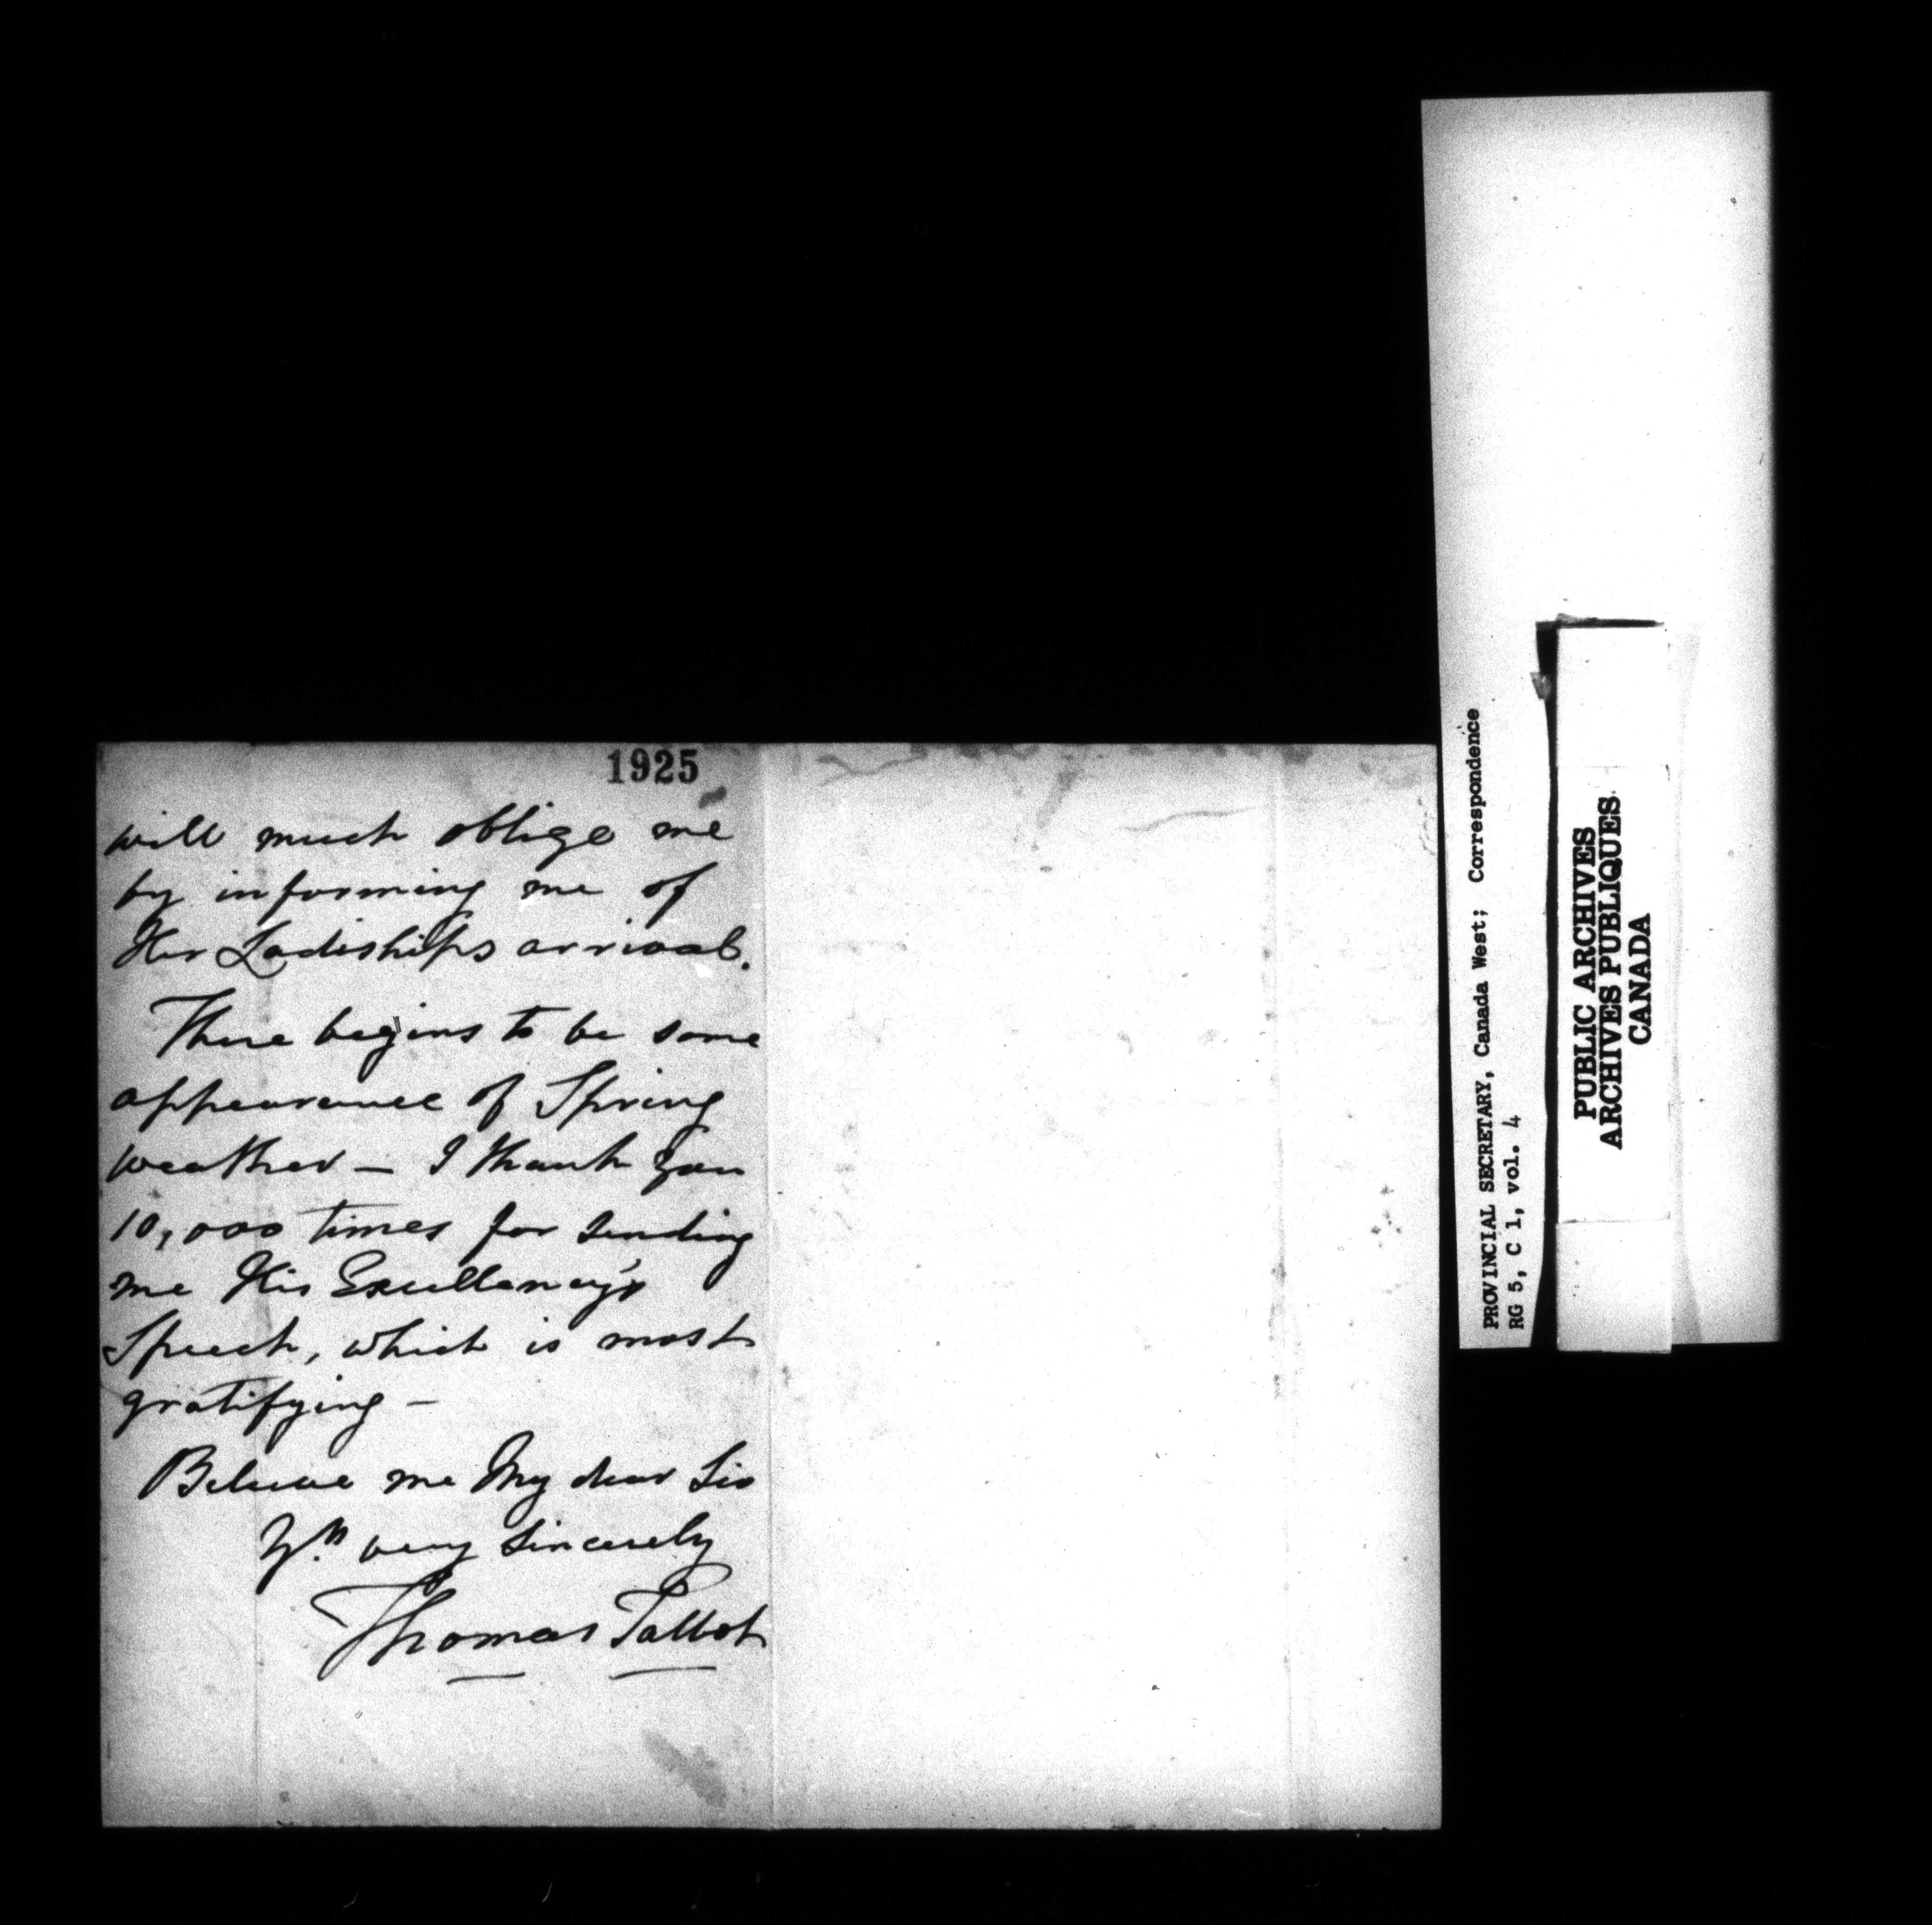 1925
will much oblige me
by informing me of
Her Ladiships arrival.
There begins to be some
appearance of Spring
weather — I thank you
10,000 times for sending
me His Excellency's
Speech, which is most
gratifying —
Believe me My dear Sir
Yrs very sincerely
Thomas Talbot
PROVINCIAL SECRETARY, Canada West; Correspondence
RG 5, C 1, vol. 4
PUBLIC ARCHIVES
ARCHIVES PUBLIQUES
CANADA